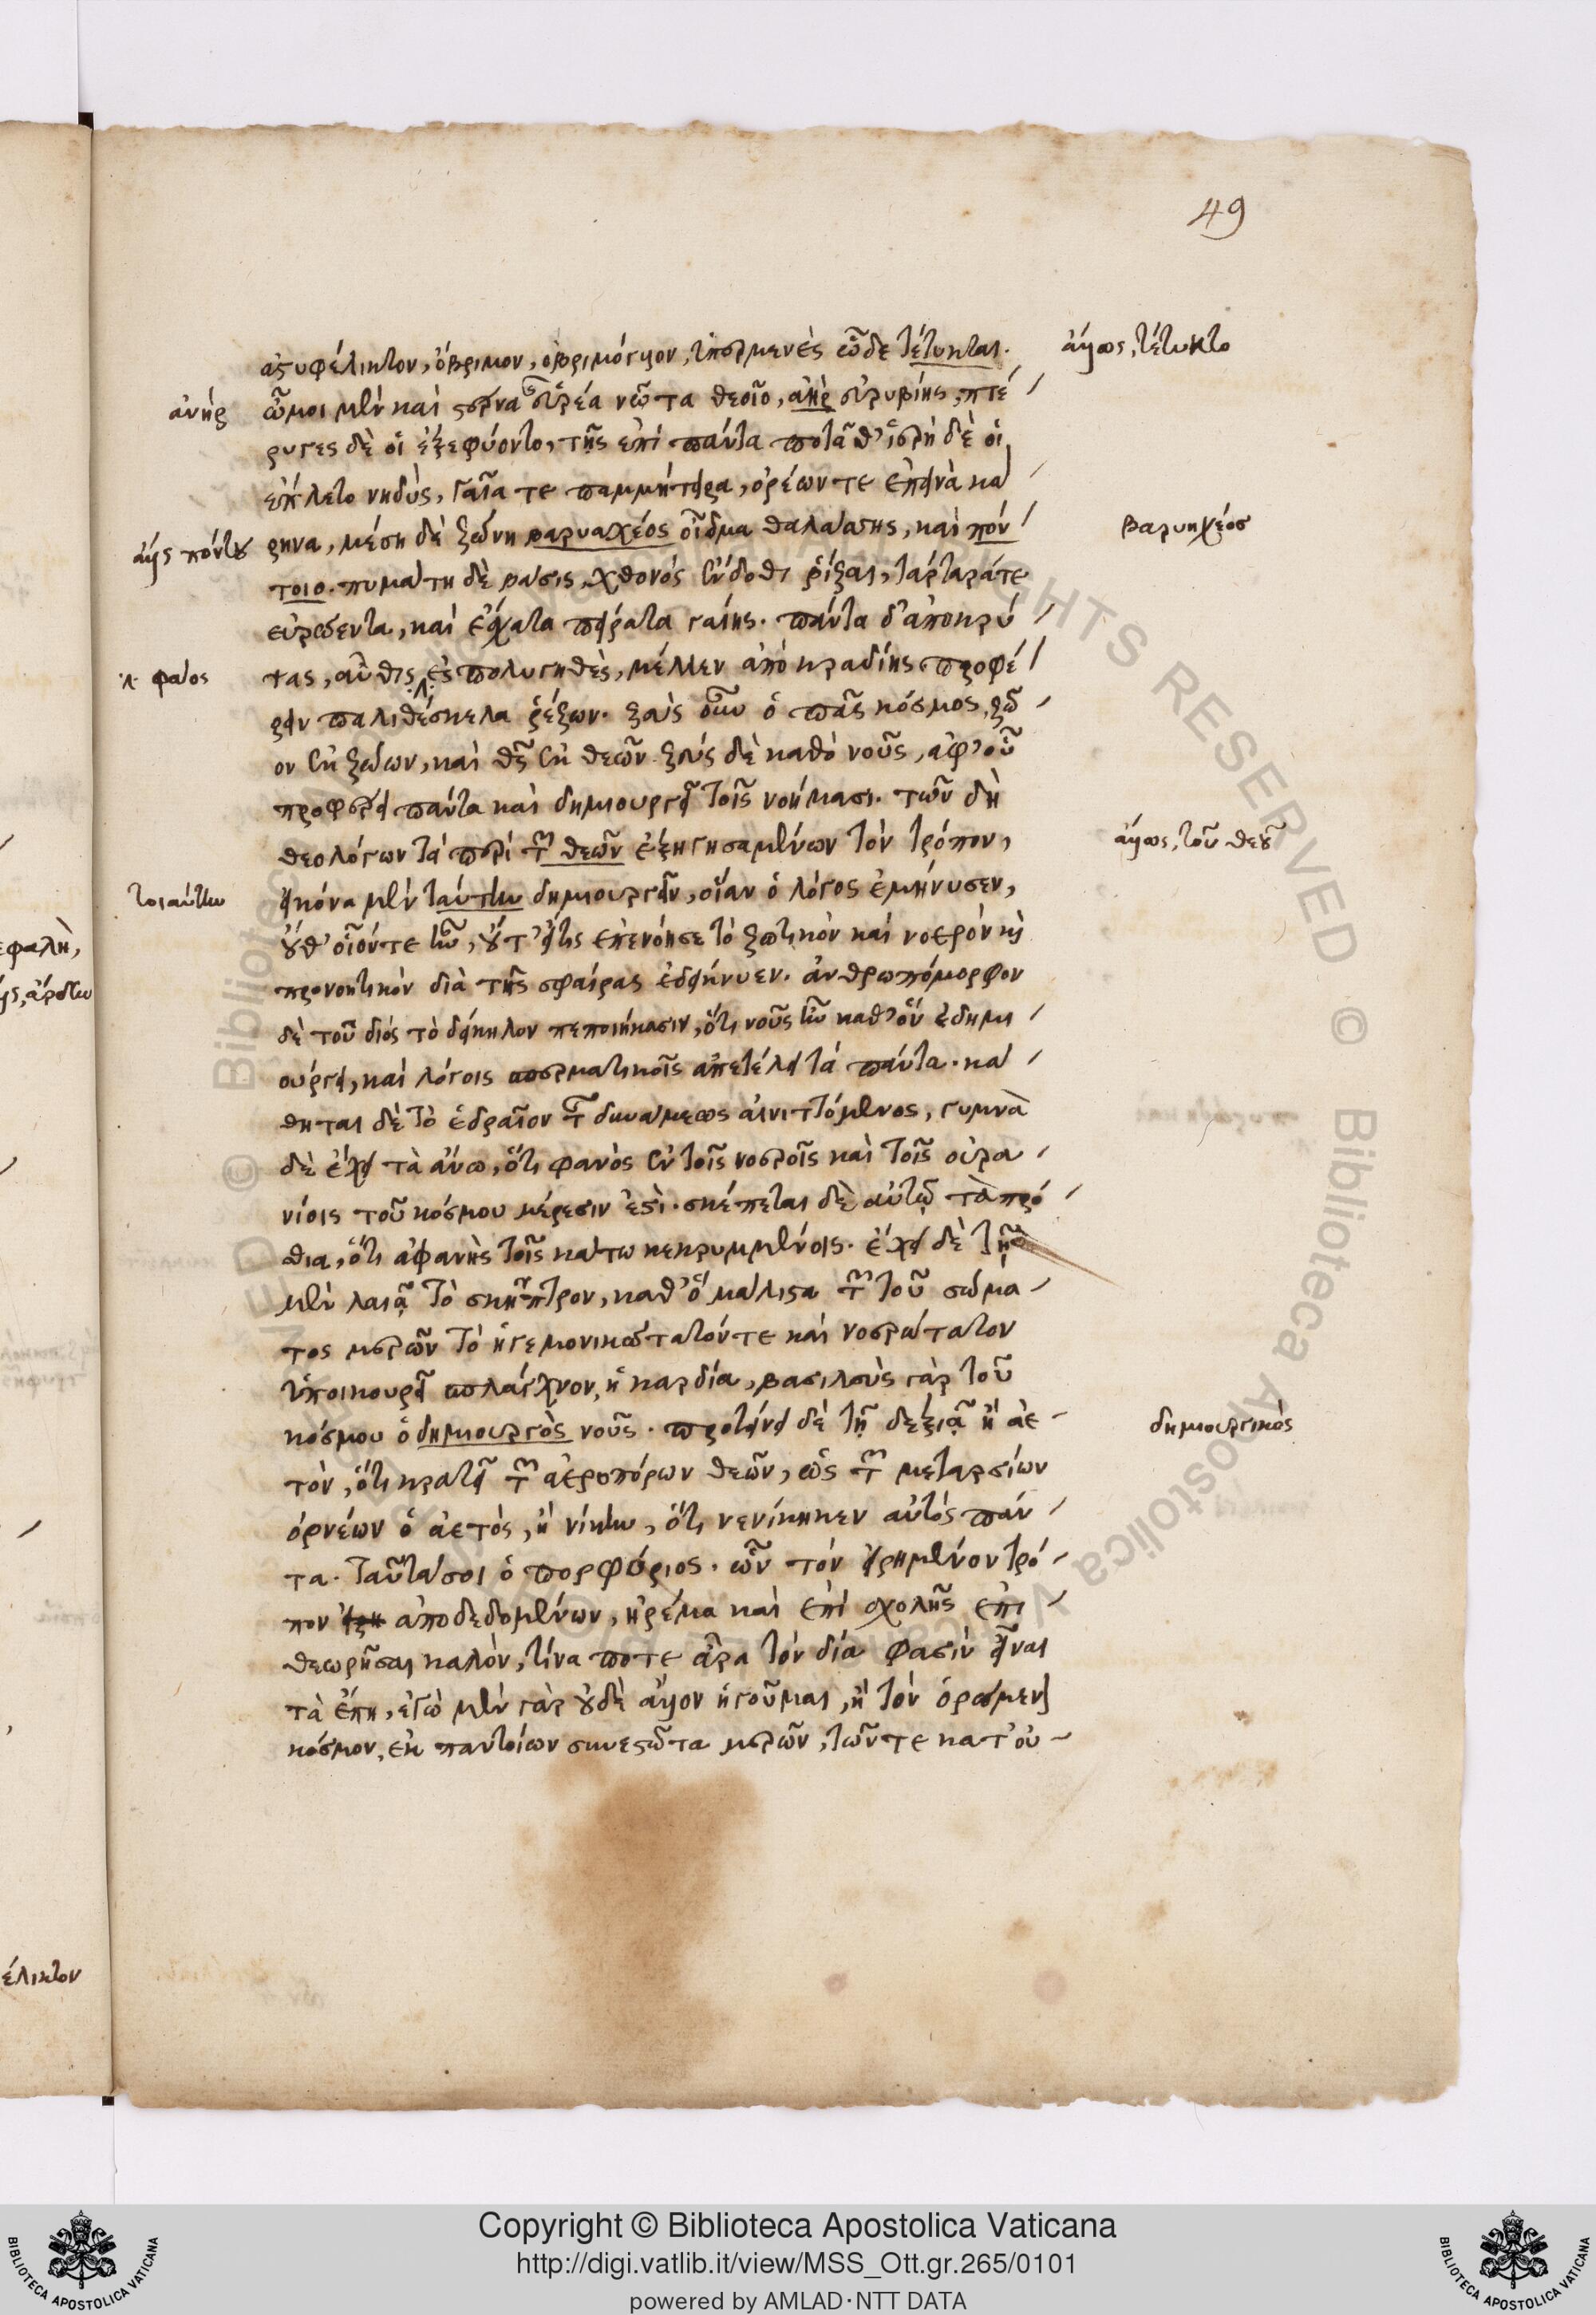 49
ἀστυφέλικτον, ὄβριμον, ὀβριμόγυον, ὑπερμενὲς ὧδε τέτυκται.
ὦμοι μὲν καὶ στέρνα εὐρέα νῶτα θεοῖο, ἀὴρ εὐρυβίης, πτέ
ρυγες δὲ οἱ ἐξεφύοντο, τῆς ἐπὶ πάντα ποτᾶθ' ἱερὴ δὲ οἱ
ἔπλετο νηδύς, γαῖα τε παμμήτειρα, ὀρέων τε ἐπεινὰ κά
ρηνα, μέση δὲ ζώνη βαρυαχέος οἶδμα θαλάσσης, καὶ πόν
τοιο. πυμάτη δὲ βάσις, χθονός ἔνδοθι ῥίζαι, τάρταρά τε
εὐρώεντα, καὶ ἔσχατα πείρατα γαίης. πάντα δ' ἀποκρύ
τας, αὖθις ἐς πολυγηθὲς, μέλλεν ἀπὸ κραδίης προφέ
ρειν πάλι θέσκελα ῥέζων. ζεὺς οὖν ὁ πᾶς κόσμος, ζῶ
ον ἐκ ζώων, καὶ θεὸς ἐκ θεῶν. ζεὺς δὲ καθὸ νοῦς, ἀφ' οὗ
προφέρει πάντα καὶ δημιουργεῖ τοῖς νοήμασι. τῶν δὴ
θεολόγων τὰ περὶ τῶν θεῶν ἐξηγησαμένων τὸν τρόπον,
εἰκόνα μὲν ταύτην δημιουργεῖν, οἵαν ὁ λόγος ἐμήνυσεν,
οὔθ' οἷόντε ἦν, οὔτ' εἴτις ἐπενόησε τὸ ζωτικὸν καὶ νοερὸν καὶ
προνοητικὸν διὰ τῆς σφαίρας ἐδείκνυεν. ἀνθρωπόμορφον
δὲ τοῦ διὸς τὸ δείκηλον πεποιήκασιν, ὅτι νοῦς ἦν καθ' ὃν ἐδημι
ούργει, καὶ λόγοις σπερματικοῖς ἀπετέλει τὰ πάντα. κά
θηται δὲ τὸ ἑδραῖον τῆς δυνάμεως αἰνιττόμενος, γυμνὰ
δὲ ἔχει τὰ ἄνω, ὅτι φανὸς ἐν τοῖς νοεροῖς καὶ τοῖς οὐρα
νίοις τοῦ κόσμου μέρεσιν ἐστὶ. σκέπεται δὲ αὐτῷ τὰ πρό
θια, ὅτι ἀφανὴς τοῖς κάτω κεκρυμμένοις. ἔχει δὲ τῇ
μὲν λαιᾷ τὸ σκῆπτρον, καθ' ὃ μάλιστα τῶν τοῦ σώμα
τος μερῶν τὸ ἡγεμονικώτατόν τε καὶ νοερώτατον
ὑποικουρεῖ σπλάγχνον, ἡ καρδία, βασιλεὺς γὰρ τοῦ
κόσμου ὁ δημιουργὸς νοῦς. προτείνει δὲ τῇ δεξιᾷ ἢ ἀε
τὸν, ὅτι κρατεῖ τῶν ἀεροπόρων θεῶν, ὡς τῶν μεταρσίων
ὀρνέων ὁ ἀετός, ἢ νίκην, ὅτι νενίκηκεν αὐτὸς πάν
τα. ταῦτά σοι ὁ πορφύριος. ὧν τὸν εἰρημένον τρό
πον ἀποδεδομένων, ἠρέμα καὶ ἐπὶ σχολῆς ἐπι
θεωρῆσαι καλὸν, τίνα ποτε ἄρα τὸν δία φασὶν εἶναι
τὰ ἔπη, ἐγὼ μὲν γὰρ οὐδὲ ἄλλον ἡγοῦμαι, ἢ τὸν ὁρώμενον
κόσμον, ἐκ παντοίων συνεστῶτα μερῶν, τῶν τε κατ' οὐ
ἀνήρ
ἄλλως πόντου
λ. φάος
τοιαύτην
ἄλλως, τέτυκτο
βαρυηχέος
ἄλλως, τοῦ θεοῦ
δημιουργικὸς
εφαλὴ,
έλικτον
Copyright © Biblioteca Apostolica Vaticana
http://digi.vatlib.it/view/MSS_Ott.gr.265/0101
powered by AMLAD·NTT DATA
BIBLIOTECA APOSTOLICA VATICANA
BIBLIOTECA APOSTOLICA VATICANA